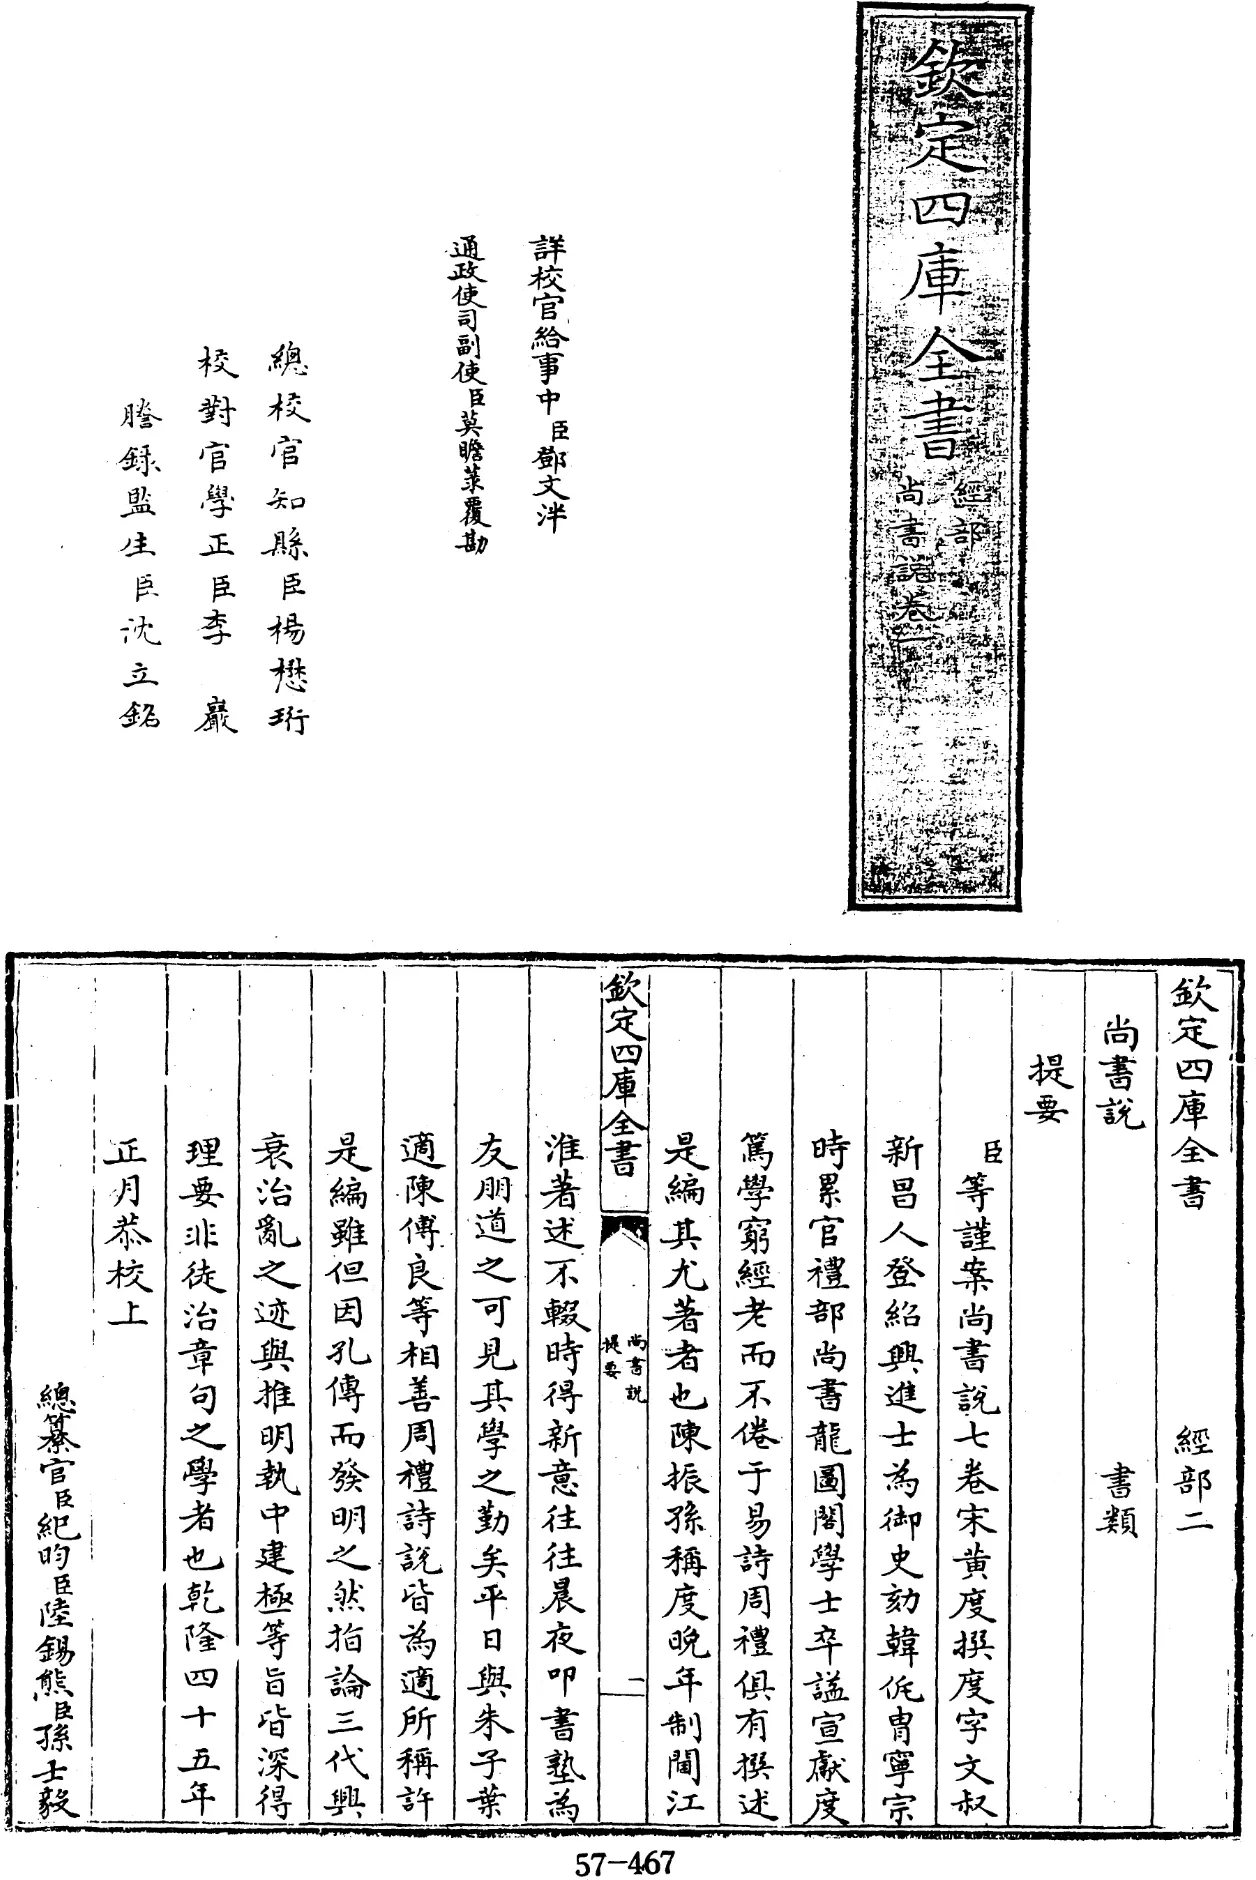 欽定四庫全書
經部
尚書說卷一
詳校官給事中臣鄧文泮
通政使司副使臣莫瞻菉覆勘
總校官知縣臣楊懋珩
校對官學正臣李 巖
謄錄監生臣沈立銘
欽定四庫全書 經部二
尚書說 書類
提要
臣等謹案尚書說七卷宋黃度撰度字文叔
新昌人登紹興進士為御史劾韓侂胄寧宗
時累官禮部尚書龍圖閣學士卒諡宣獻度
篤學窮經老而不倦于易詩周禮俱有撰述
是編其尤著者也陳振孫稱度晚年制閫江
欽定四庫全書
尚書說
提要
一
淮著述不輟時得新意往往晨夜叩書塾為
友朋道之可見其學之勤矣平日與朱子葉
適陳傅良等相善周禮詩說皆為適所稱許
是編雖但因孔傳而發明之然指論三代興
衰治亂之迹與推明執中建極等旨皆深得
理要非徒治章句之學者也乾隆四十五年
正月恭校上
總纂官臣紀昀臣陸錫熊臣孫士毅
57-467